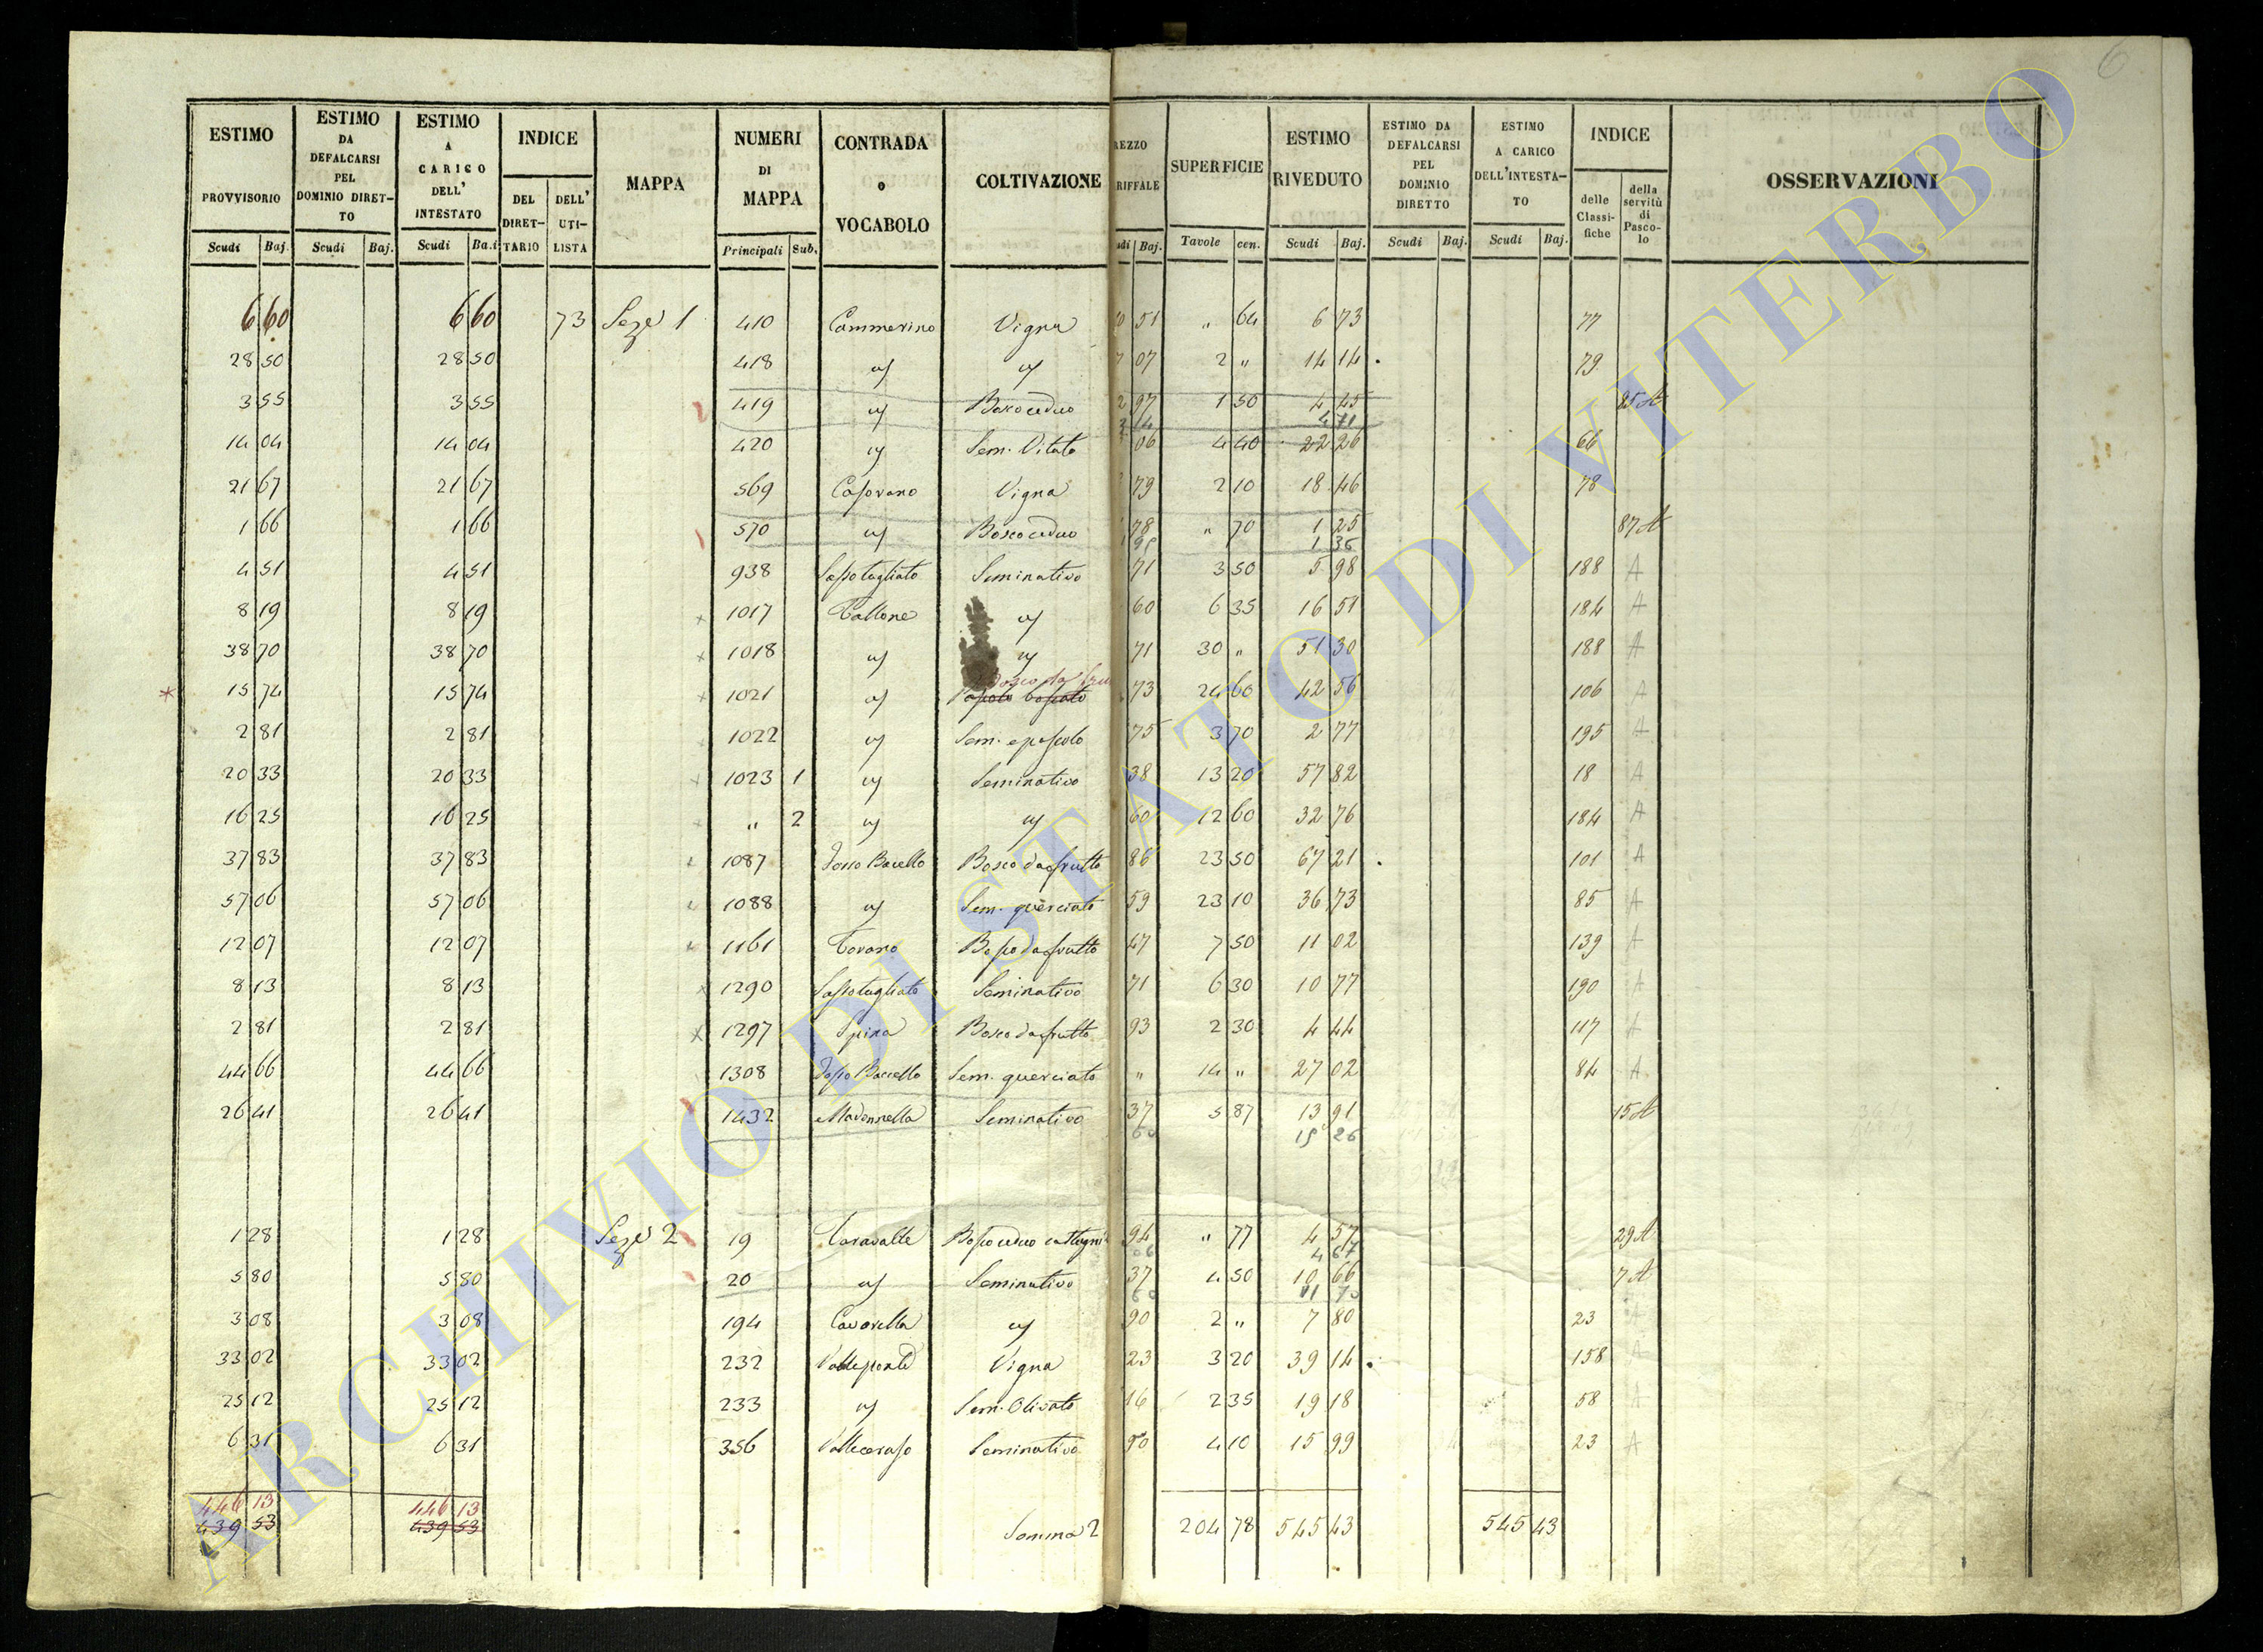 6
ESTIMO PROVVISORIO Scudi Baj.
ESTIMO DA DEFALCARSI PEL DOMINIO DIRET-TO Scudi Baj.
ESTIMO A CARICO DELL' INTESTATO Scudi Ba.i
INDICE DEL DIRET-TARIO DELL' UTI-LISTA
MAPPA
NUMERI DI MAPPA Principali Sub.
CONTRADA o VOCABOLO
COLTIVAZIONE
REZZO RIFFALE udi Baj.
SUPERFICIE Tavole cen.
ESTIMO RIVEDUTO Scudi Baj.
ESTIMO DA DEFALCARSI PEL DOMINIO DIRETTO Scudi Baj.
ESTIMO A CARICO DELL'INTESTA-TO Scudi Baj.
INDICE delle Classi-fiche della servitù di Pasco-lo
OSSERVAZIONI
6 60 6 60 73 Seze 1 410 Cammerino Vigna 51 " 64 6 73 77
28 50 28 50 418 07 2 " 14 14 79
3 55 3 55 419 Bosco ceduo 97 1 50 4 45 25 A
14 4 71
14 04 14 04 420 Sem. Vitato 06 4 40 22 26 66
21 67 21 67 569 Casovano Vigna 79 2 10 18 46 78
1 66 1 66 570 Bosco ceduo 78 " 70 1 25 87 A
95 1 36
4 51 4 51 938 Sassotagliato Seminativo 71 3 50 5 98 188 A
8 19 8 19 1017 60 6 35 16 51 184 A
38 70 38 70 1018 71 30 " 51 30 188 A
15 74 15 74 1021 Pascolo boscato 73 24 60 42 56 106 A
2 81 2 81 1022 Sem. e pascolo 75 3 70 2 77 195 A
20 33 20 33 1023 1 Seminativo 38 13 20 57 82 18 A
16 25 16 25 " 2 60 12 60 32 76 184 A
37 83 37 83 1087 Bosco da frutto 86 23 50 67 21 101 A
57 06 57 06 1088 Sem. querciato 59 23 10 36 73 85 A
12 07 12 07 1161 Bosco da frutto 47 7 50 11 02 139 A
8 13 8 13 1290 Sassotagliato Seminativo 71 6 30 10 77 190 A
2 81 2 81 1297 Spina Bosco da frutto 93 2 30 4 44 117 A
44 66 44 66 1308 Sem. querciato " 14 " 27 02 84 A
26 41 26 41 1432 Madonnella Seminativo 37 5 87 13 91 15 A
60 15 26
1 28 1 28 Seze 2 19 Caravalle Bosco ceduo castagni 94 " 77 4 57 29 A
06 4 67
5 80 5 80 20 Seminativo 37 4 50 10 66 7 A
60 11 70
3 08 3 08 194 Cavarella 90 2 " 7 80 23
33 02 33 02 232 Vigna 23 3 20 39 14 158 A
25 12 25 12 233 Sem. Olivato 16 2 35 19 18 58 A
6 31 6 31 356 Valleceraso Seminativo 90 4 10 15 99 23 A
446 13 446 13
439 53 439 53 Somma 2 204 78 545 43 545 43
ARCHIVIO DI STATO DI VITERBO